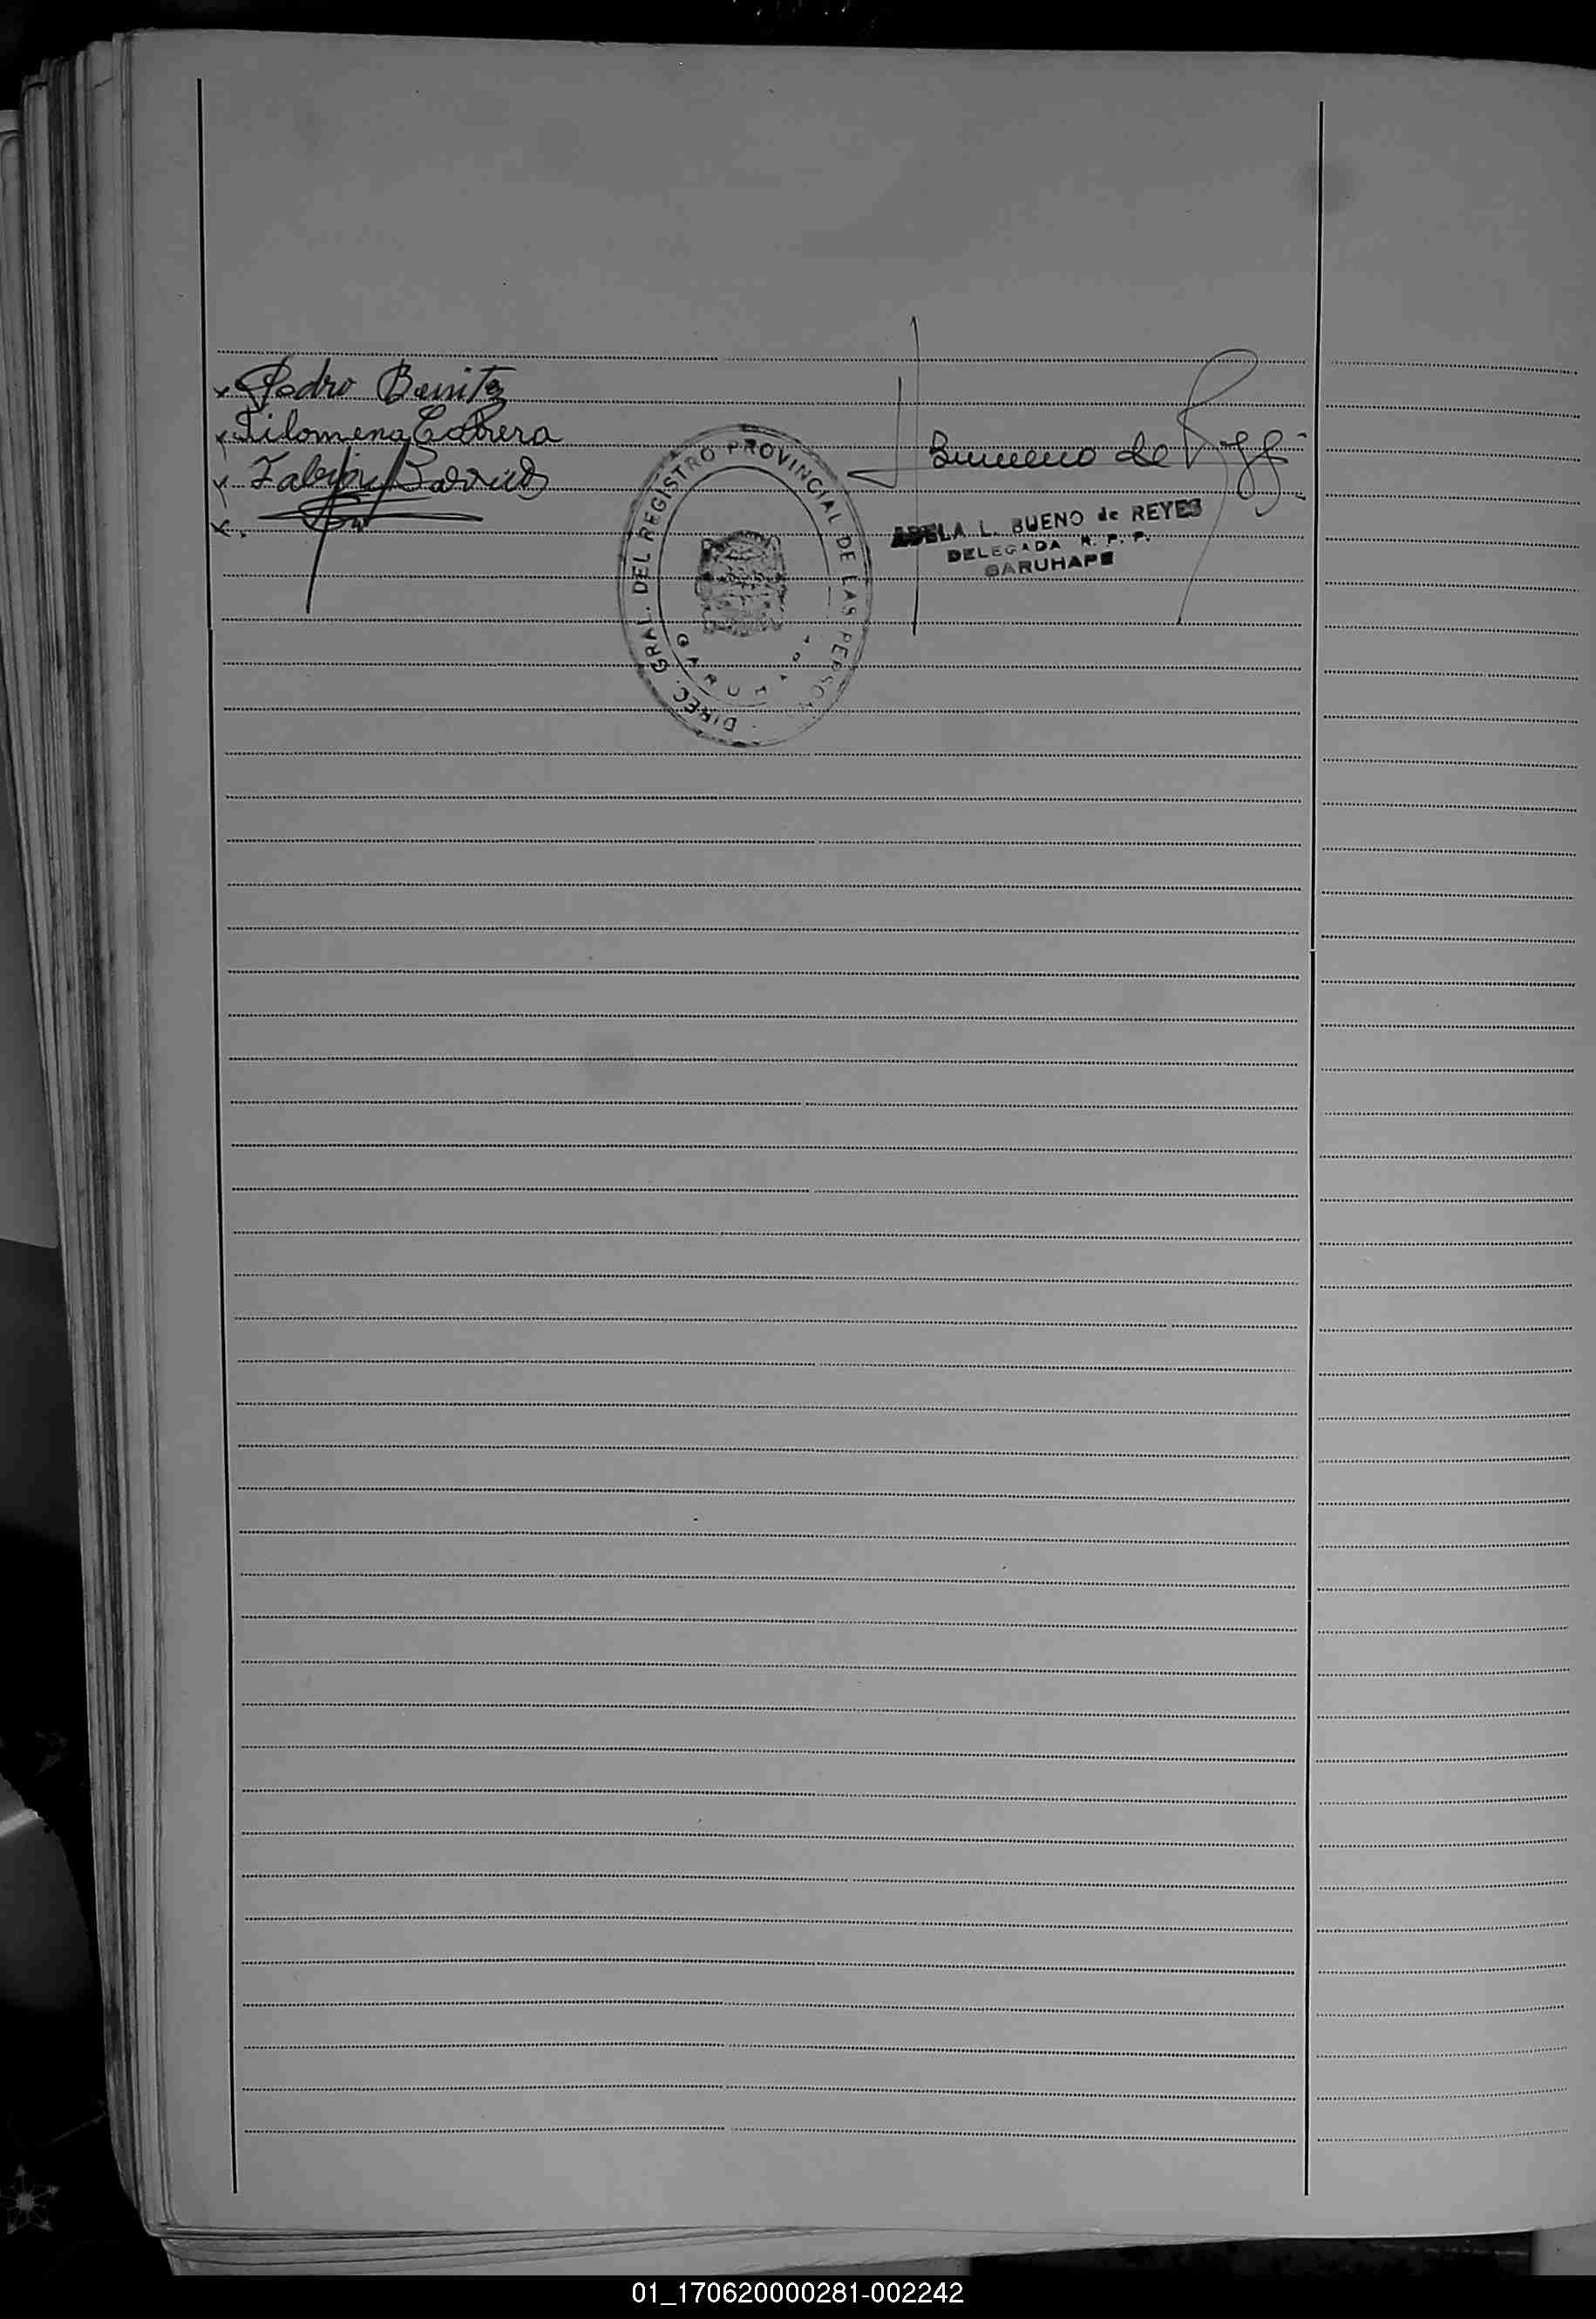 x Pedro Benitez
x Filomena Cabrera
x Fabian Barrios
x
DIREC. GRAL. DEL REGISTRO PROVINCIAL DE LAS PERSON
GARUHAPE
Bueno de Reyes
ADELA L. BUENO de REYES
DELEGADA R. P. P.
GARUHAPE
01_170620000281-002242